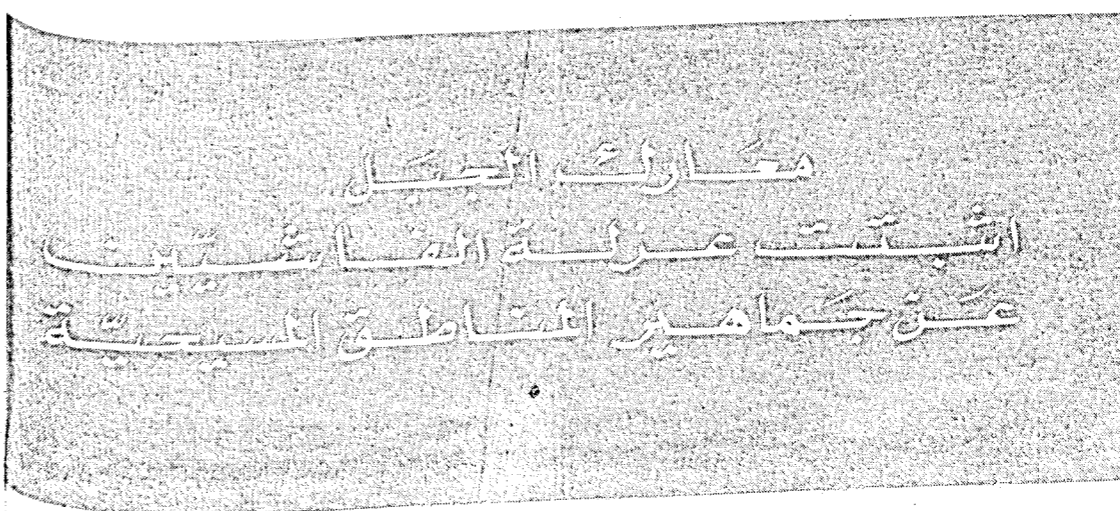 معَارك الجبَل
اثبتت عزلة الفاشيّين
عَن جَماهير المناطق المسيحيّة